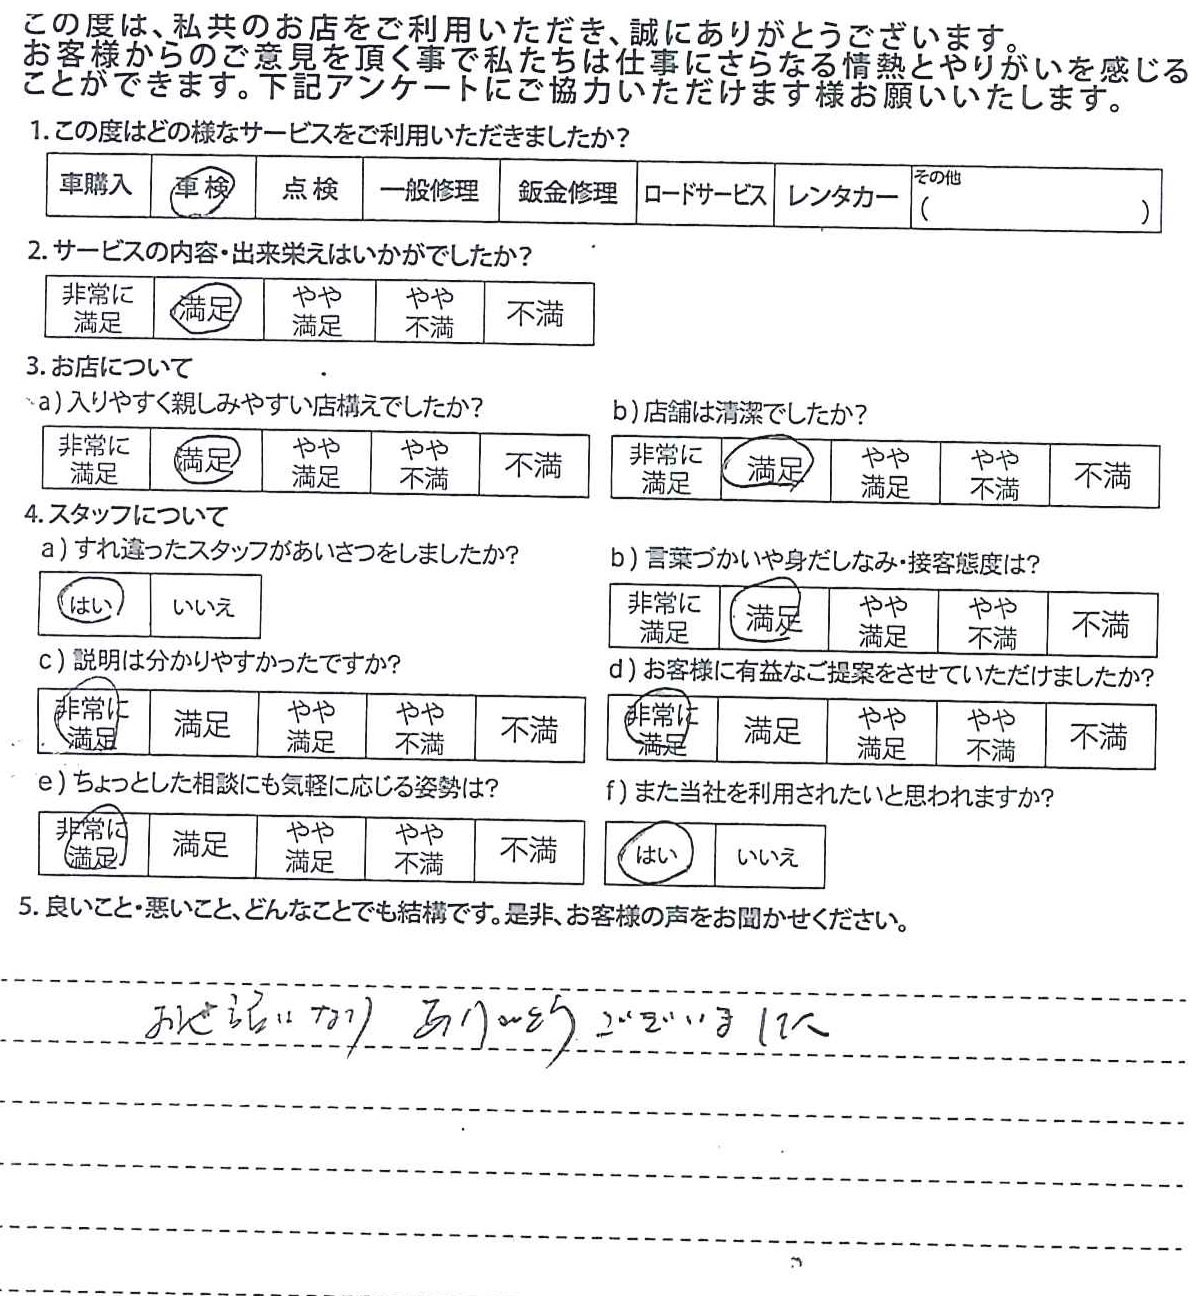 この度は、私共のお店をご利用いただき、誠にありがとうございます。
お客様からのご意見を頂く事で私たちは仕事にさらなる情熱とやりがいを感じる
ことができます。下記アンケートにご協力いただけます様お願いいたします。
1.この度はどの様なサービスをご利用いただきましたか?
車購入 車検 点検 一般修理 鈑金修理 ロードサービス レンタカー その他 ( )
2.サービスの内容・出来栄えはいかがでしたか?
非常に満足 満足 やや満足 やや不満 不満
3.お店について
a)入りやすく親しみやすい店構えでしたか?
非常に満足 満足 やや満足 やや不満 不満
b)店舗は清潔でしたか?
非常に満足 満足 やや満足 やや不満 不満
4.スタッフについて
a)すれ違ったスタッフがあいさつをしましたか?
はい いいえ
b)言葉づかいや身だしなみ・接客態度は?
非常に満足 満足 やや満足 やや不満 不満
c)説明は分かりやすかったですか?
非常に満足 満足 やや満足 やや不満 不満
d)お客様に有益なご提案をさせていただけましたか?
非常に満足 満足 やや満足 やや不満 不満
e)ちょっとした相談にも気軽に応じる姿勢は?
非常に満足 満足 やや満足 やや不満 不満
f)また当社を利用されたいと思われますか?
はい いいえ
5.良いこと・悪いこと、どんなことでも結構です。是非、お客様の声をお聞かせください。
お世話になり ありがとうございました